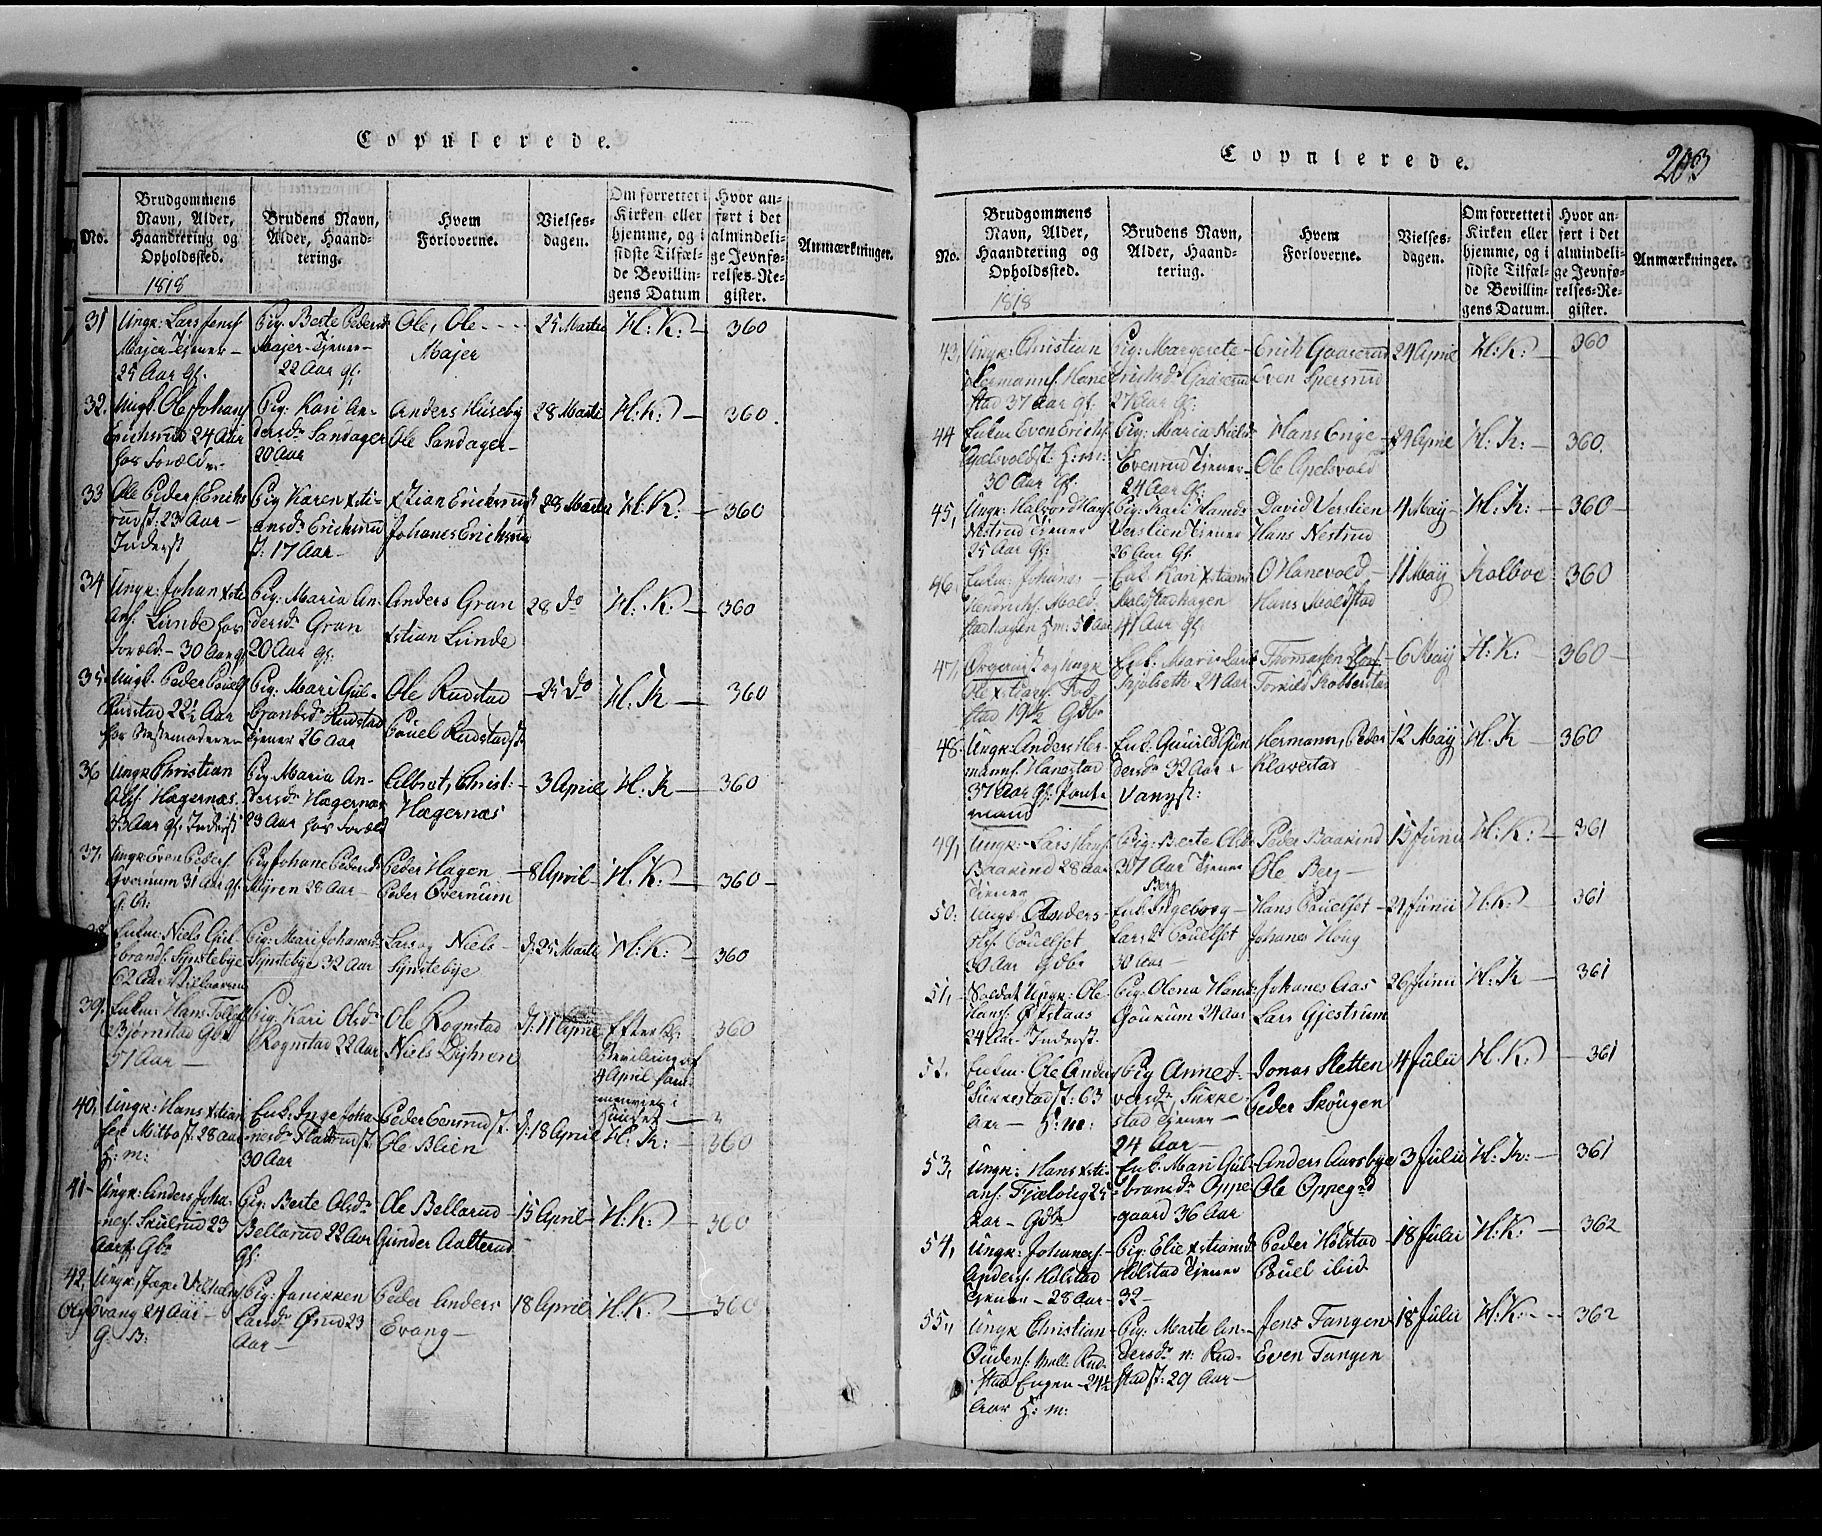 Copulerede.
No.
Brudgommens
Navn, Alder,
Haandtering og
Opholdssted.
1818
Brudens Navn,
Alder, Haand-
tering.
Hvem
Forloverne.
Vielses-
dagen.
Om forrettet i
Kirken eller
hjemme, og i
sidste Tilfæl-
de Bevillin-
gens Datum
Hvor an-
ført i det
almindeli-
ge Jevnfø-
relses-Re-
gister.
Anmærkninger.
31
Ungk: Lars Jens
Majer Tjener -
25 Aar gf.
Pig Berte Peders
Majer - Tjener -
22 Aar gf.
Ole, Ole - - -
Majer
25 Martii
H: K: -
360
32.
Ungk. Ole Johans
Erichsrud 24 Aar
hos Foræld
Pig: Kari An-
dersdr Sandager
20 Aar
Anders Huseby
Ole Sandager -
28 Marti
H: K: -
360.
33
Ole Peders Erichs
rud : 23 Aar -
Inderst
Pig Karen Xsti-
ansdr Erichsrud
: 17 Aar -
Xstian Erichsrud
Johanes Erichsrud
28 Marti
H: K: -
360
34
Ungk: Johan Xsti
ans: Lunde hos
Foræld - 30 Aar gf
Pig: Maria An-
dersdr Gran
20 Aar gf:
Anders Gran
Xstian Lunde
28 do
H: K -
360
35
Ungk. Peder Pouels
Rustad 22½ Aar
hos
Pig: Mari Gul-
brandsdr Rustad
Tjener 26 Aar
Ole Rudstad
Pouel Rudstad
- 25 do
H: K -
360
36
Ungk Christian
Olsf. Hægernæs.
33 Aar gf. Inderst
Pig Maria An-
dersdr Hægernæs
23 Aar hos Foræld
Albret, Christ:
Hægernæs
- 3 April
H: K -
360
37.
Ungk Even Peders
Øvernum 31 Aar gf.
Pig Johane Pedersd
Myren 28 Aar -
Peder Hagen
Peder Øvernum
- 8 April
H: K: -
360 -
38.
Enkm: Niels Gul
brands. Synstebye
62 Aar
Pig: Mari Johanesd
Synstebye 32 Aar
Lars og Niels -
Synstebye
25 Marti
H: K: -
360
39.
Enkm Hans
Bjørnstad Gbr
51 Aar -
Pig: Kari Olsdr
Rognstad 22 Aar
Ole Rognstad
Niels Dyhren
11 April
Efter Kl:
Bevilling af
9 April
i
Huuset -
360
40,
Ungk: Hans Xstian
Mitbo : 28 Aar
H: m:
Enk: Inge Joha-
nesdr
30 Aar
Peder
Ole Blien
18 April
H: K: -
360
41 -
Ungk: Anders Joha-
nes. Skulrud 23
Aar Gbr
Pig: Berte Olsdr
Bellerud 22 Aar
gf:
Ole Bellerud -
Gunder Aalterud
15 April -
H: K: -
360
42,
Ungk: Vilhelm
Evang 24 Aar -
G: B:
Pig: Janikken
Larsdr 23
Aar -
Peder Anders
Evang -
18 April
H: K: -
360
Copulerede.
203
No.
Brudgommens
Navn, Alder,
Haandtering og
Opholdssted.
1818
Brudens Navn,
Alder, Haand-
tering.
Hvem
Forloverne.
Vielses-
dagen.
Om forrettet i
Kirken eller
hjemme, og i
sidste Tilfæl-
de Bevillin-
gens Datum.
Hvor an-
ført i det
almindeli-
ge Jevnfø-
relses-Re-
gister.
Anmærkninger.
43,
Ungk: Christian
Hermans. Hane
stad 37 Aar gf.
Pig: Margerete -
Ericksdr Gaaserud
27 Aar gf:
Erich Gaaserud
Even Spersrud
24 April
H: K: -
360
44
Enkm Even Erichs
Apelsvold : H: m:
30 Aar gf.
Pig: Maria Nielsd
Evenrud Tjener -
24 Aar gf:
Hans Enge -
Ole Apelsvold
24 April
H: K: -
360.
45,
Ungk: Halvord Hans
Nestrud Tjener
25 Aar gf:
Pig: Kari
Verslien Tjener
26 Aar gf.
David Verslien
Hans Nestrud
4 May -
H: K: -
360 -
46.
Enkm: Johanes -
Hendrichs. Mold
stadhagen H: m: 51 Aar
Enk: Kari Xstians
Moldstadhagen
41 Aar gf:
O Hanevold -
Hans Moldstad
11 May
Kolboe
360
47,
Organist og Ungk
Ole Xstians.
stad 19½ Gdbr
Enk: Mari Lars
Skjølseth 24 Aar
Thomassen
Torkild
6 May
H: K: -
360 -
48.
Ungk: Anders Her-
manns. Hanestad
37 Aar gf:
mand
Enk: Guuild Gun
dersdr 32 Aar -
Vang
Hermann, Peder
Klovestad
12 May
H: K -
360
49,
Ungk: - Lars Hans
Baarud 28 Aar
Tjener
Pig: Berte Olsd
Aar Tjener
Berg
Peder
Ole Berg -
15 Junii
H: K: -
361
50:
Ungk. Anders -
Olsf. Pouelset
30 Aar Gdbr
Enk: Ingeborg -
Larsdr Pouelset
30 Aar -
Hans Pouelset -
Johanes Houg
21 Junii
H: K: -
361
51,
Soldat Ungk: Ole
Hans. Øfstaas
24 Aar Inderst.
Pig: Olena Hansd
24 Aar
Johanes Aas
Lars Gjestrum
26 Junii
H: K -
361
52.
Enkm. Ole Anders
Sukkestad : 63
Aar - H: m:
Pig Anne I-
versdr Sukke-
stad Tjener -
24 Aar -
Jonas Sletten
Peder Skougen
4 Julii
H: K: -
361
53,
Ungk: Hans Xsti-
ans. 25
Aar - Gdbr
Enk: Mari Gul-
bransdr Oppe-
gaard 36 Aar
Anders Aarsbye
Ole Oppegrd
3 Julii
H: K: -
361
54,
Ungk: Johanes -
Anders. Holstad
Tjener - 28 Aar -
Pig: Elie Xstiansd
Holstad Tjener
32 -
Peder Holstad
Pouel ibid -
18 Julii
H: K: -
362
55,
Ungk Christian
Oudens. Mell: Rud-
stad Engen - 24½
Aar H: m:
Pig: Marte An-
dersdr n: Rud-
stad : 29 Aar -
Jens Tangen
Even Tangen
18 Julii
H: K: - -
362